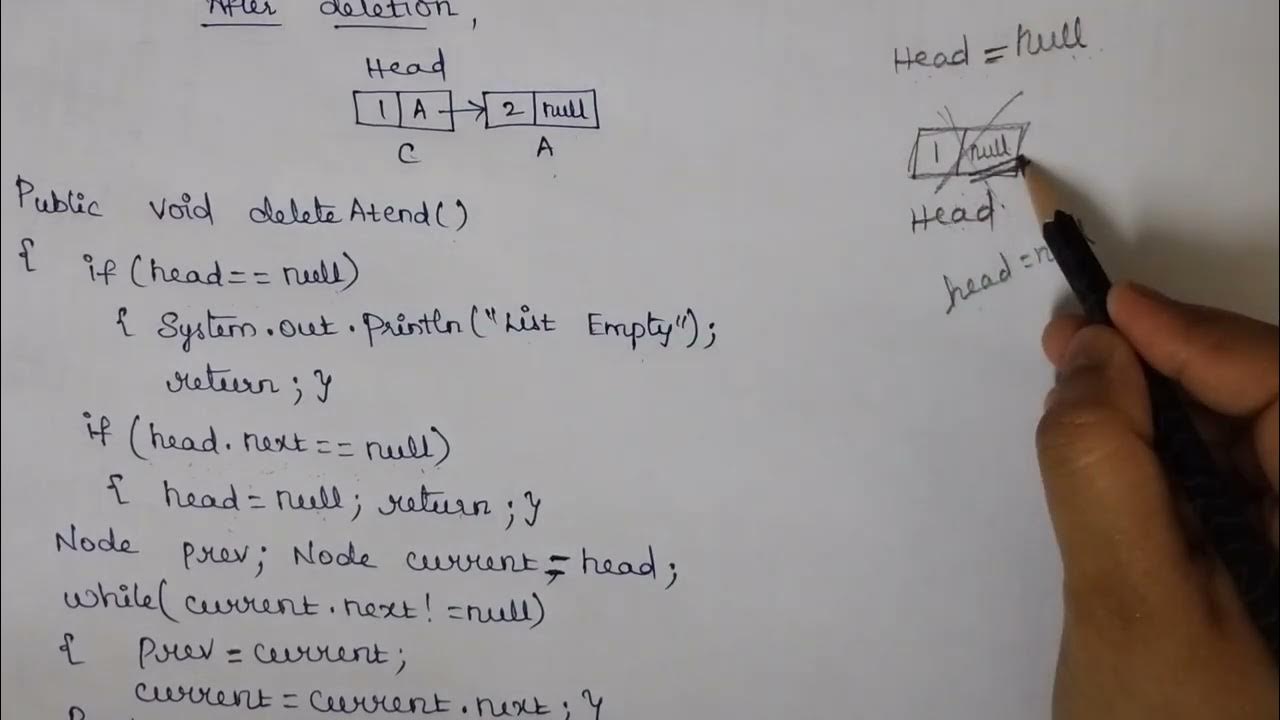 After deletion,
Head
1 A 2 null
C A
Public void deleteAtend()
{ if (head == null)
{ System.out.Println("List Empty");
return; }
if (head.next == null)
{ head = null; return; }
Node prev; Node current = head;
while(current.next! = null)
{ Prev = current;
current = current.next; }
Head = Null
1 null
Head
head =